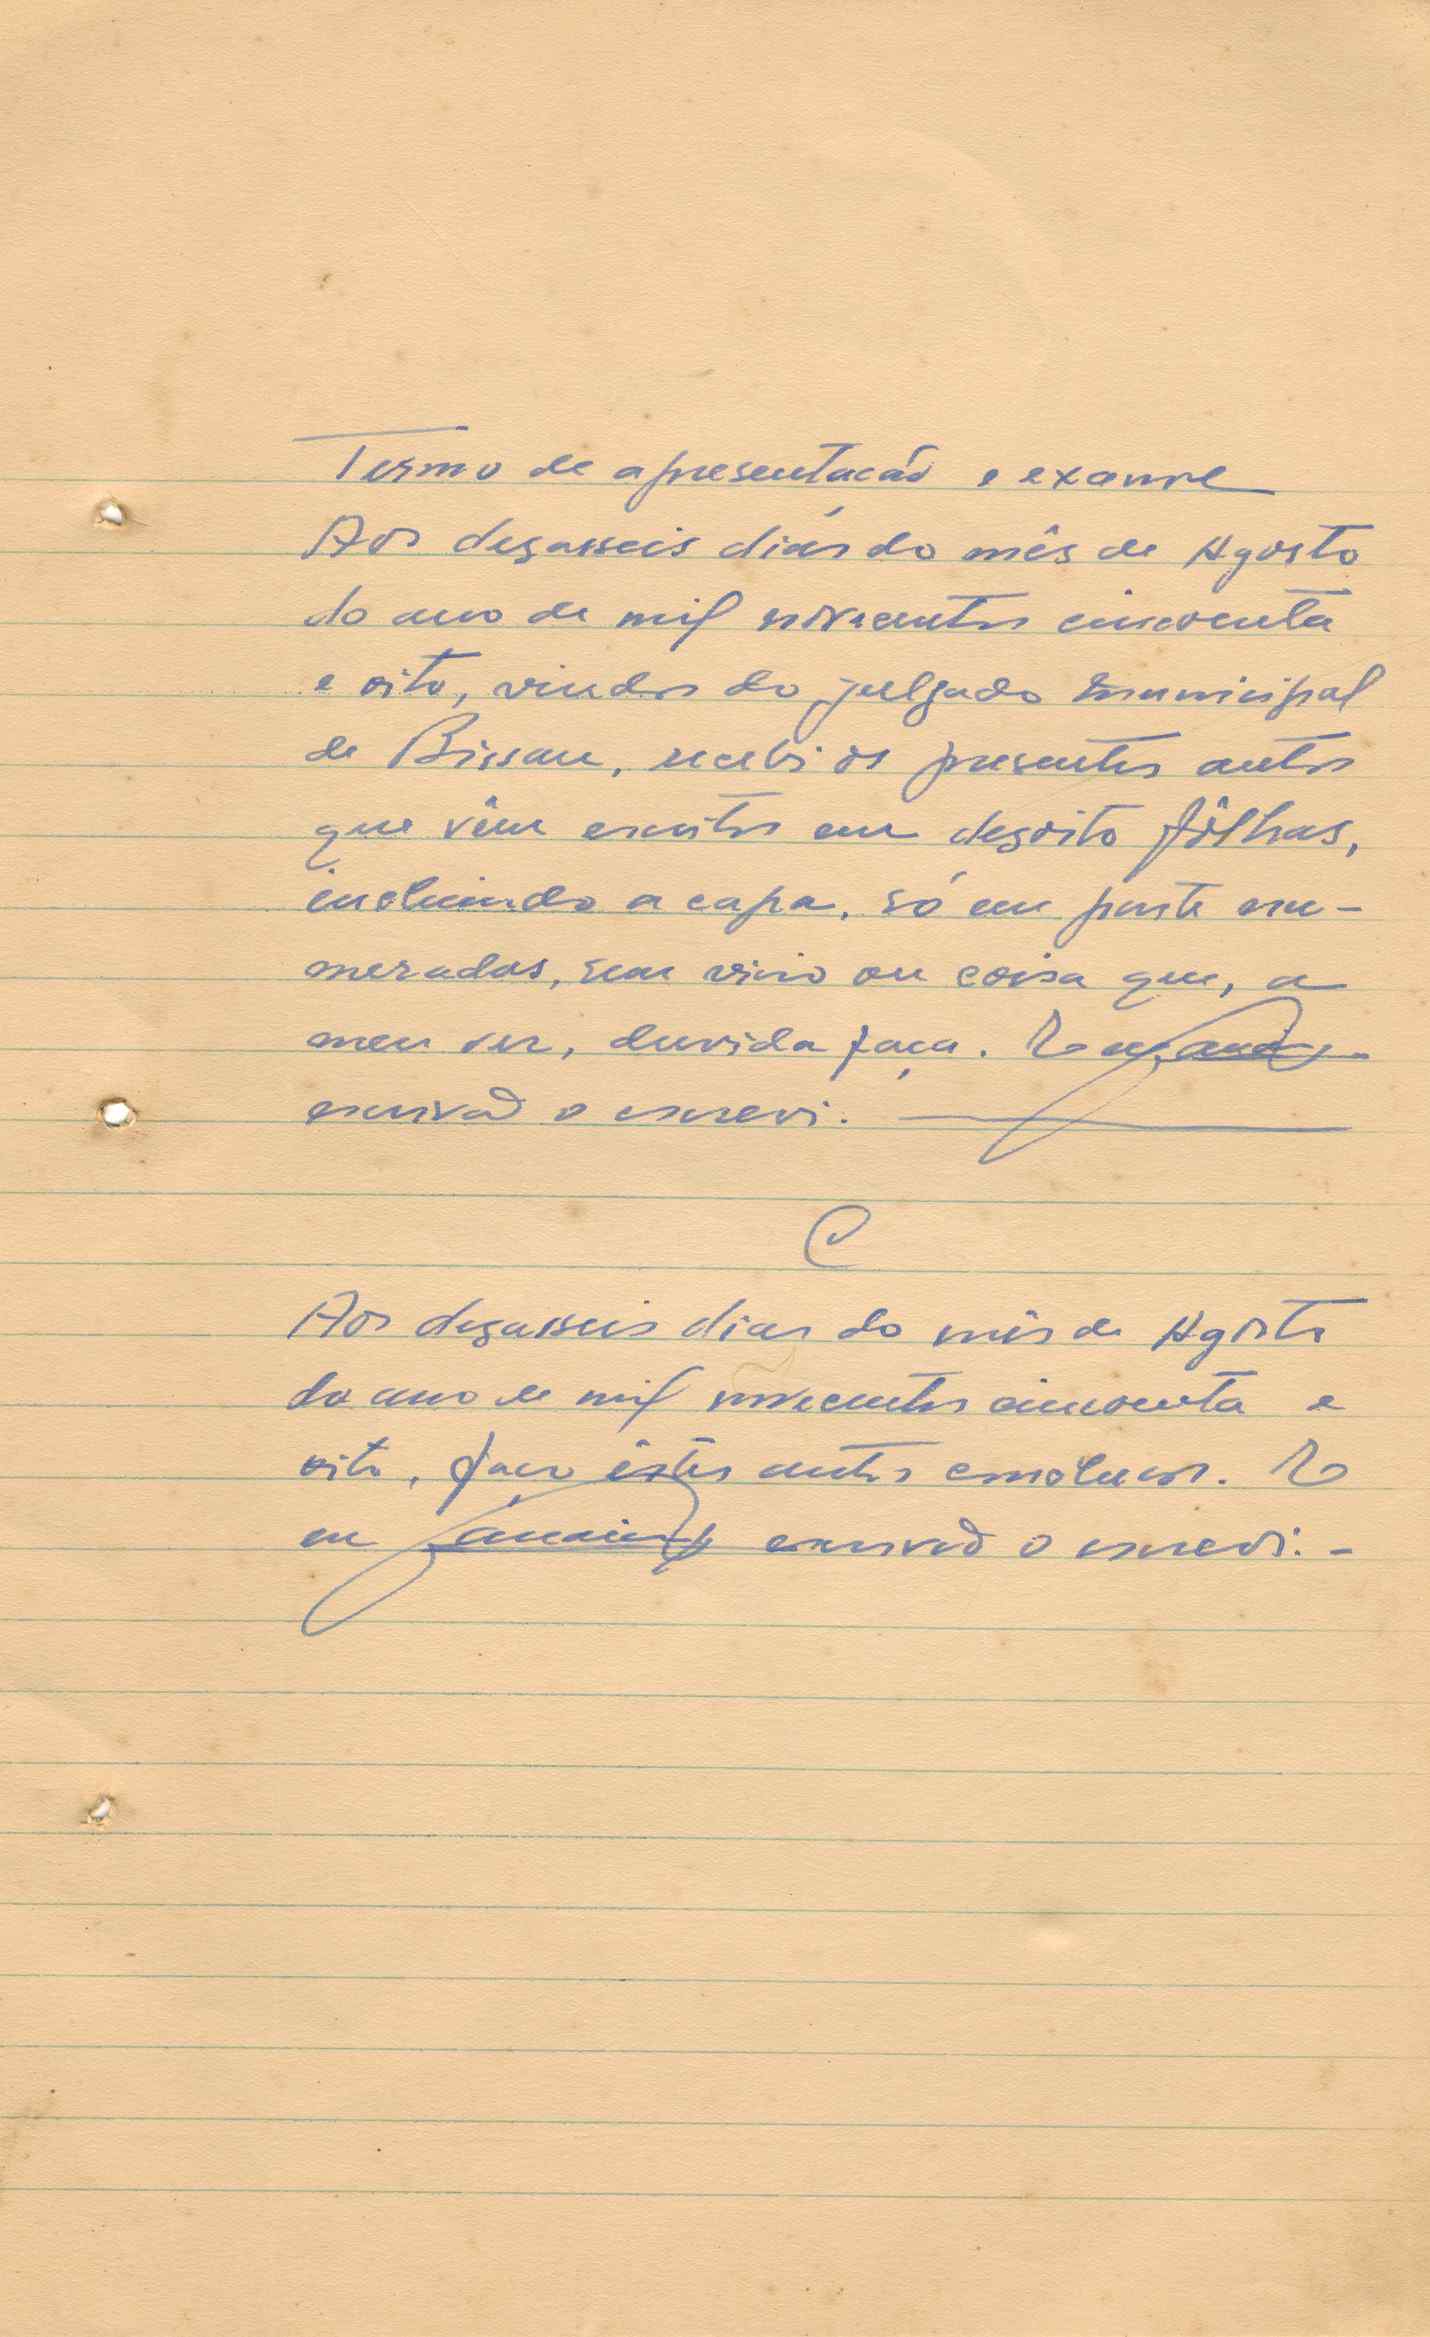 Termo de apresentação e exame
Aos desasseis dias do mês de Agosto
do ano de mil novecentos cincoenta
e oito, vindos do julgado municipal
de Bissau, recebi os presentes autos
que vêm escritos em desoito fôlhas,
incluindo a capa, só em parte nu-
meradas, sem vicio ou coisa que, a
meu ver, duvida faça. E eu
escrivão o escrevi.
C
Aos desasseis dias do mês de Agosto
do ano de mil novecentos cincoenta e
oito, faço êstes autos conclusos. E
eu escrivão o escrevi. -